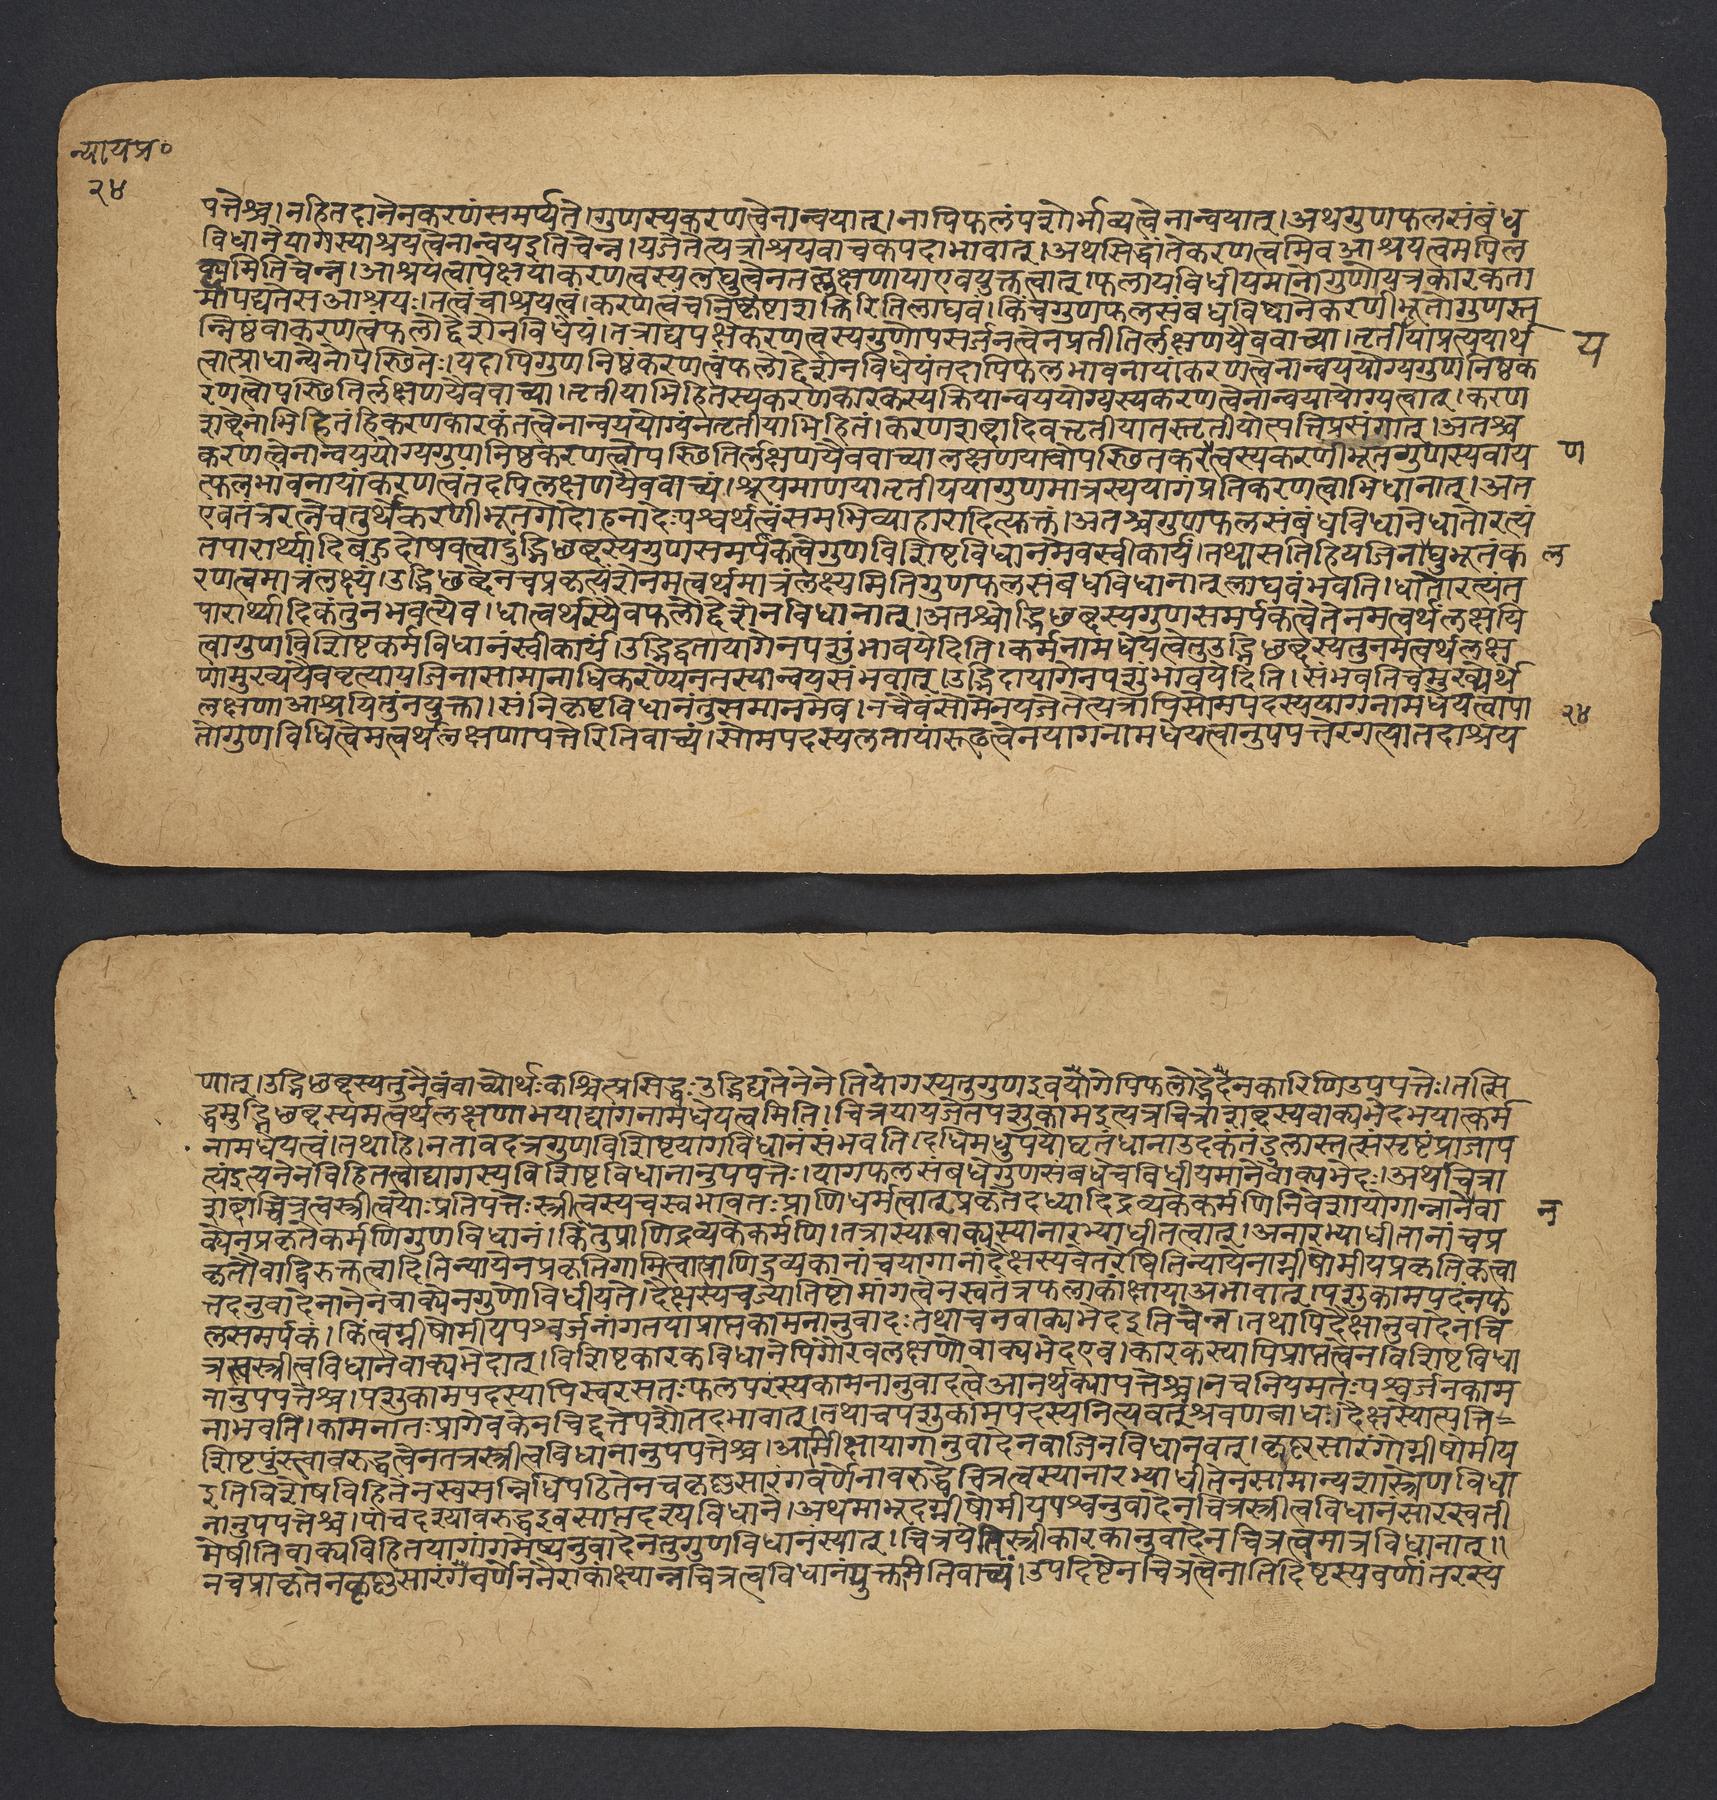 न्यायप्र०
२४
पत्तेश्च।नहितदानेनकरणंसमर्प्यते।गुणस्यकरणत्वेनान्वयात्।नापिफलंपशोर्भाव्यत्वेनान्वयात्।अथगुणफलसंबंध
विधानेयागस्याश्रयत्वेनान्वयइतिचेन्न।यजेतेत्यत्राश्रयवाचकपदाभावात्।अथसिद्धांतेकरणत्वमिवआश्रयत्वमपिल
क्ष्यमितिचेन्न।आश्रयत्वापेक्षयाकरणत्वस्यलघुत्वेनतल्लक्षणायाएवयुक्तत्वात्।फलायविधीयमानोगुणोयत्रकारकता
मापद्यतेसआश्रयः।तत्वंचाश्रयत्वं।करणत्वंचनिष्कृष्टाशक्तिरितिलाघवं।किंचगुणफलसंबंधविधानेकरणीभूतोगुणस्त
न्निष्ठंवाकरणत्वंफलोद्देशेनविधेयं।तत्राद्यपक्षेकरणत्वस्यगुणोपसर्जनत्वेनप्रतीतिर्लक्षणयैववाच्या।तृतीयाप्रत्ययार्थ
य
त्वात्प्राधान्येनोपस्थितेः।यदापिगुणनिष्ठकरणत्वंफलोद्देशेनविधेयंतदापिफलभावनायांकरणत्वेनान्वययोग्यगुणनिष्ठक
रणत्वोपस्थितिर्लक्षणयैववाच्या।तृतीयाभिहितस्यकरणकारकस्यक्रियान्वययोग्यस्यकरणत्वेनान्वयायोग्यत्वात्।करण
शब्देनाभिहितंहिकरणकारकंतत्वेनान्वययोग्यंनतृतीयाभिहितं।करणशब्दादिवत्तृतीयातस्तृतीयोत्पत्तिप्रसंगात्।अतश्च
करणत्वेनान्वययोग्यगुणनिष्ठकरणत्वोपस्थितिर्लक्षणयैववाच्यालक्षणयावोपस्थितकरत्वस्यकरणीभूतगुणस्यवाय
ण
त्फलभावनायांकरणत्वंतदपिलक्षणयैववाच्यं।श्रूयमाणयातृतीययागुणमात्रस्ययागंप्रतिकरणत्वाभिधानात्।अत
एवतंत्ररत्नेचतुर्थेकरणीभूतगोदोहनादेःपश्वर्थत्वंसमभिव्याहारादित्युक्तं।अतश्चगुणफलसंबंधविधानेधातोरत्यं
तपारार्थ्यादिबहुदोषवत्त्वादुद्भिच्छब्दस्यगुणसमर्पकत्वेगुणविशिष्टविधानमेवस्वीकार्यं।तथासतिहियजिनाघुभूतंक
ल
रणत्वमात्रंलक्ष्यं।उद्भिच्छब्देनचप्रकृत्यंशेनमत्वर्थमात्रंलक्ष्यमितिगुणफलसंबंधविधानात्लाघवंभवति।धातोरत्यंत
पारार्थ्यादिकंतुनभवत्येव।धात्वर्थस्यैवफलोद्देशेनविधानात्।अतश्चोद्भिच्छब्दस्यगुणसमर्पकत्वेतेनमत्वर्थंलक्षयि
त्वागुणविशिष्टकर्मविधानंस्वीकार्यं।उद्भिद्वतायागेनपशुंभावयेदिति।कर्मनामधेयत्वेतुउद्भिच्छब्दस्यतुनमत्वर्थलक्ष
णामुख्ययैववृत्त्यायजिनासामानाधिकरण्येनतस्यान्वयसंभवात्।उद्भिदायागेनपशुंभावयेदिति।संभवतिचमुख्येर्थे
लक्षणाआश्रयितुंनयुक्ता।संनिकृष्टविधानंतुसमानमेव।नचैवंसोमेनयजेतेत्यत्रापिसोमपदस्ययागनामधेयत्वापा
२४
तोगुणविधित्वेमत्वर्थलक्षणापत्तेरितिवाच्यं।सोमपदस्यलतायांरूढत्वेनयागनामधेयत्वानुपपत्तेरगत्यातदाश्रय
णात्।उद्भिच्छब्दस्यतुनैवंवाच्योर्थःकश्चित्प्रसिद्धःउद्भिद्यतेनेनेतियोगस्यतुगुणइवयोगेपिफलोद्भेदनकारिणिउपपत्तेः।तत्सि
द्धमुद्भिच्छब्दस्यमत्वर्थलक्षणाभयाद्यागनामधेयत्वमिति।चित्रयायजेतपशुकामइत्यत्रचित्राशब्दस्यवाक्यभेदभयात्कर्म
नामधेयत्वं।तथाहि।नतावदत्रगुणविशिष्टयागविधानंसंभवति।दधिमधुपयोघृतंधानाउदकंतंडुलास्तत्संसृष्टंप्राजाप
त्यंइत्यनेनविहितत्वाद्यागस्यविशिष्टविधानानुपपत्तेः।यागफलसंबंधेगुणसंबंधेचविधीयमानेवाक्यभेदः।अथचित्रा
शब्दाच्चित्रत्वस्त्रीत्वयोःप्रतिपत्तेःस्त्रीत्वस्यचस्वभावतःप्राणिधर्मत्वात्प्रकृतेदध्यादिद्रव्यकेकर्मणिनिवेशायोगान्नानेवा
न
क्येनप्रकृतेकर्मणिगुणविधानं।किंतुप्राणिद्रव्यकेकर्मणि।तत्रास्यावाक्यस्यानारभ्याधीतत्वात्।अनारभ्याधीतानांचप्र
कृतौवाद्विरुक्तत्वादितिन्यायेनप्रकृतिगामित्वात्प्राणिद्रव्यकानांचयागानांदैक्षस्यचेतरेष्वितिन्यायेनाग्नीषोमीयप्रकृतिकत्वा
त्तदनुवादेनानेनवाक्येनगुणोविधीयते।दैक्षस्यचज्योतिष्टोमांगत्वेनस्वतंत्रफलाकांक्षायाअभावात्।पशुकामपदंनफ
लसमर्पकं।किंत्वग्नीषोमीयपश्वर्जनांगतयाप्राप्तकामनानुवादःतथाचनवाक्यभेदइतिचेन्न।तथापिदैक्षानुवादेनचि
त्रत्वस्त्रीत्वविधानेवाक्यभेदात्।विशिष्टकारकविधानेपिगौरवलक्षणोवाक्यभेदएव।कारकस्यापिप्राप्तत्वेनविशिष्टविधा
नानुपपत्तेश्च।पशुकामपदस्यापिस्वरसतःफलपरस्यकामनानुवादत्वेआनर्थक्यापत्तेश्च।नचनियमतःपश्वर्जनकाम
नाभवति।कामनातःप्रागेवकेनचिद्दत्तेपशौतदभावात्।तथाचपशुकामपदस्यनित्यवत्श्रवणबाधः।दैक्षस्योत्पत्ति
शिष्टपुंस्त्वावरुद्धत्वेनतत्रस्त्रीत्वविधानानुपपत्तेश्च।आमीक्षायागानुवादेनवाजिनविधानवत्।कृष्णसारंगोग्नीषोमीय
इतिविशेषविहितेनस्वसन्निधिपठितेनचकृष्णसारंगवर्णेनावरुद्धेचित्रत्वस्यानारभ्याधीतेनसामान्यशास्त्रेणविधा
नानुपपत्तेश्च।पांचदश्यावरुद्धइवसाप्तदश्यविधाने।अथमाभूदग्नीषोमीयपश्वनुवादेनचित्रस्त्रीत्वविधानंसारस्वती
मेषीतिवाक्यविहितयागांगमेष्यनुवादेनतुगुणविधानंस्यात्।चित्रयेतिस्त्रीकारकानुवादेनचित्रत्वमात्रविधानात्॥
नचप्राकृतेनकृष्णसारंगवर्णेननैराकांक्ष्यान्नचित्रत्वविधानंयुक्तमितिवाच्यं।उपदिष्टेनचित्रत्वेनातिदिष्टस्यवर्णांतरस्य